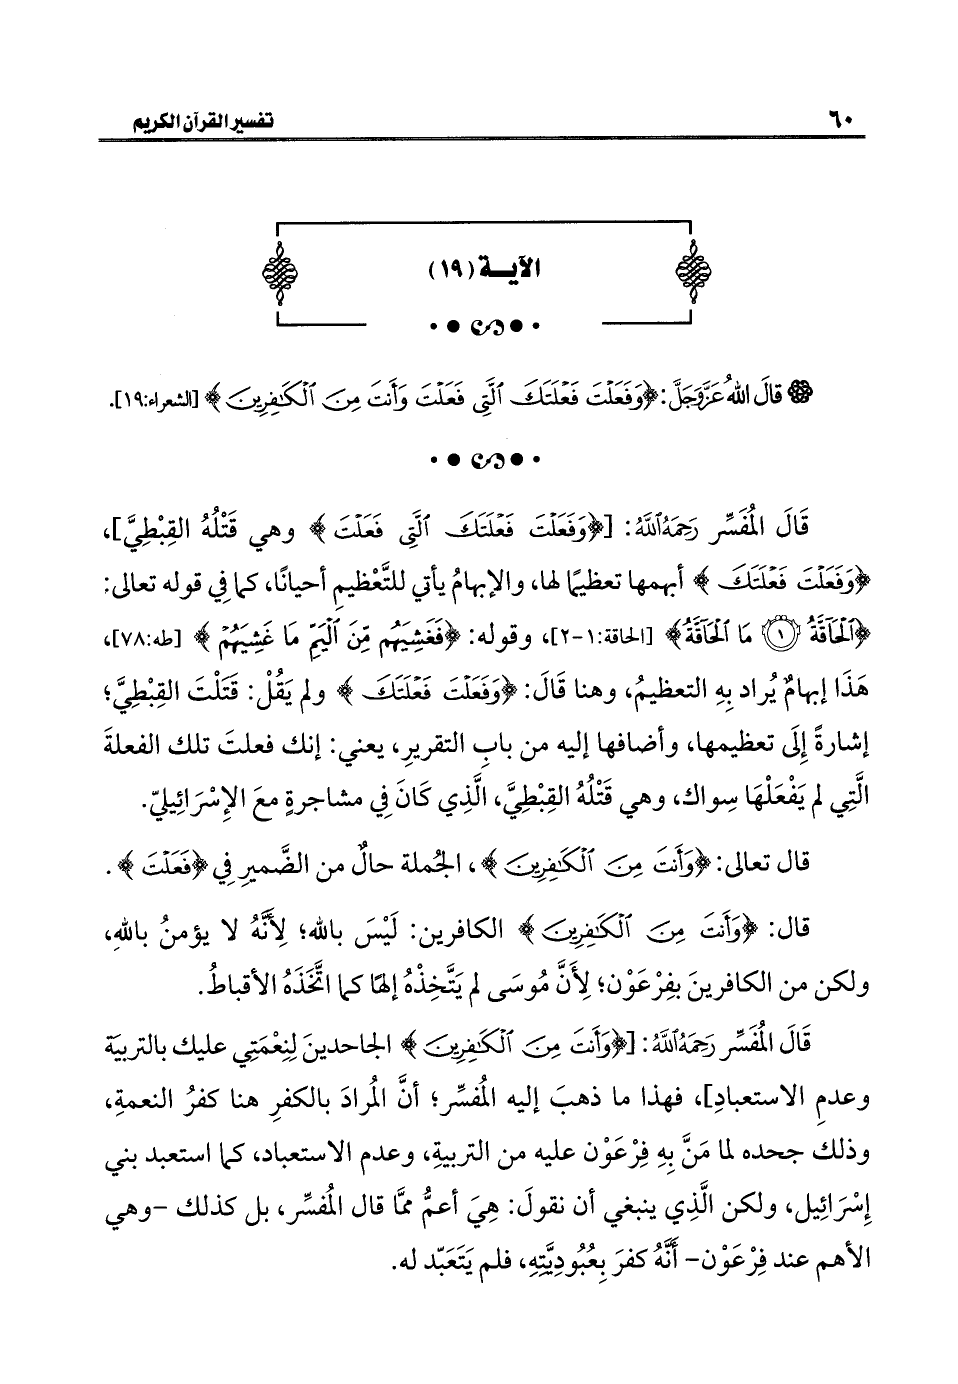 ٦٠
تفسير القرآن الكريم
الآيــة (١٩)
قَالَ اللهُ عَزَّوَجَلَّ: ﴿وَفَعَلْتَ فَعْلَتَكَ ٱلَّتِى فَعَلْتَ وَأَنتَ مِنَ ٱلْكَـٰفِرِينَ﴾ [الشعراء:١٩].
قَالَ المُفَسِّر رَحِمَهُ اللَّهُ: [﴿وَفَعَلْتَ فَعْلَتَكَ ٱلَّتِى فَعَلْتَ﴾ وهي قَتْلُهُ القِبْطِيَّ]،
﴿وَفَعَلْتَ فَعْلَتَكَ﴾ أبهمها تعظيمًا لها، والإبهامُ يأتي للتَّعْظيمِ أحيانًا، كما في قوله تعالى:
﴿ٱلْحَاقَّةُ ۝١ مَا ٱلْحَاقَّةُ﴾ [الحاقة:١-٢]، وقوله: ﴿فَغَشِيَهُم مِّنَ ٱلْيَمِّ مَا غَشِيَهُمْ﴾ [طه:٧٨]،
هَذَا إبهامٌ يُراد بِهِ التعظيمُ، وهنا قَالَ: ﴿وَفَعَلْتَ فَعْلَتَكَ﴾ ولم يَقُلْ: قَتَلْتَ القِبْطِيَّ؛
إشارةً إِلَى تعظيمها، وأضافها إليه من بابِ التقريرِ، يعني: إنك فعلتَ تلك الفعلةَ
الَّتِي لم يَفْعَلْهَا سِواك، وهي قَتْلُهُ القِبْطِيَّ، الَّذِي كَانَ فِي مشاجرةٍ معَ الإِسْرَائِيليِّ.
قال تعالى: ﴿وَأَنتَ مِنَ ٱلْكَـٰفِرِينَ﴾، الجُملة حالٌ من الضَّميرِ في ﴿فَعَلْتَ﴾.
قال: ﴿وَأَنتَ مِنَ ٱلْكَـٰفِرِينَ﴾ الكافرين: لَيْسَ بالله؛ لِأَنَّهُ لا يؤمنُ باللهِ،
ولكن من الكافرينَ بفِرْعَوْن؛ لِأَنَّ مُوسَى لم يَتَّخِذْهُ إلهًا كما اتَّخَذَهُ الأقباطُ.
قَالَ المُفَسِّر رَحِمَهُ اللَّهُ: [﴿وَأَنتَ مِنَ ٱلْكَـٰفِرِينَ﴾ الجاحدينَ لِنِعْمَتِي عليك بالتربيَة
وعدمِ الاستعبادِ]، فهذا ما ذهبَ إليه المُفسِّر؛ أنَّ المُرادَ بالكفرِ هنا كفرُ النعمةِ،
وذلك جحده لما مَنَّ بِهِ فِرْعَوْن عليه من التربيةِ، وعدم الاستعباد، كما استعبد بني
إِسْرَائِيل، ولكن الَّذِي ينبغي أن نقولَ: هِيَ أعمُّ ممَّا قال المُفسِّر، بل كذلك -وهي
الأهم عند فِرْعَوْن- أَنَّهُ كفرَ بِعُبُودِيَّتِهِ، فلم يَتَعَبَّد له.